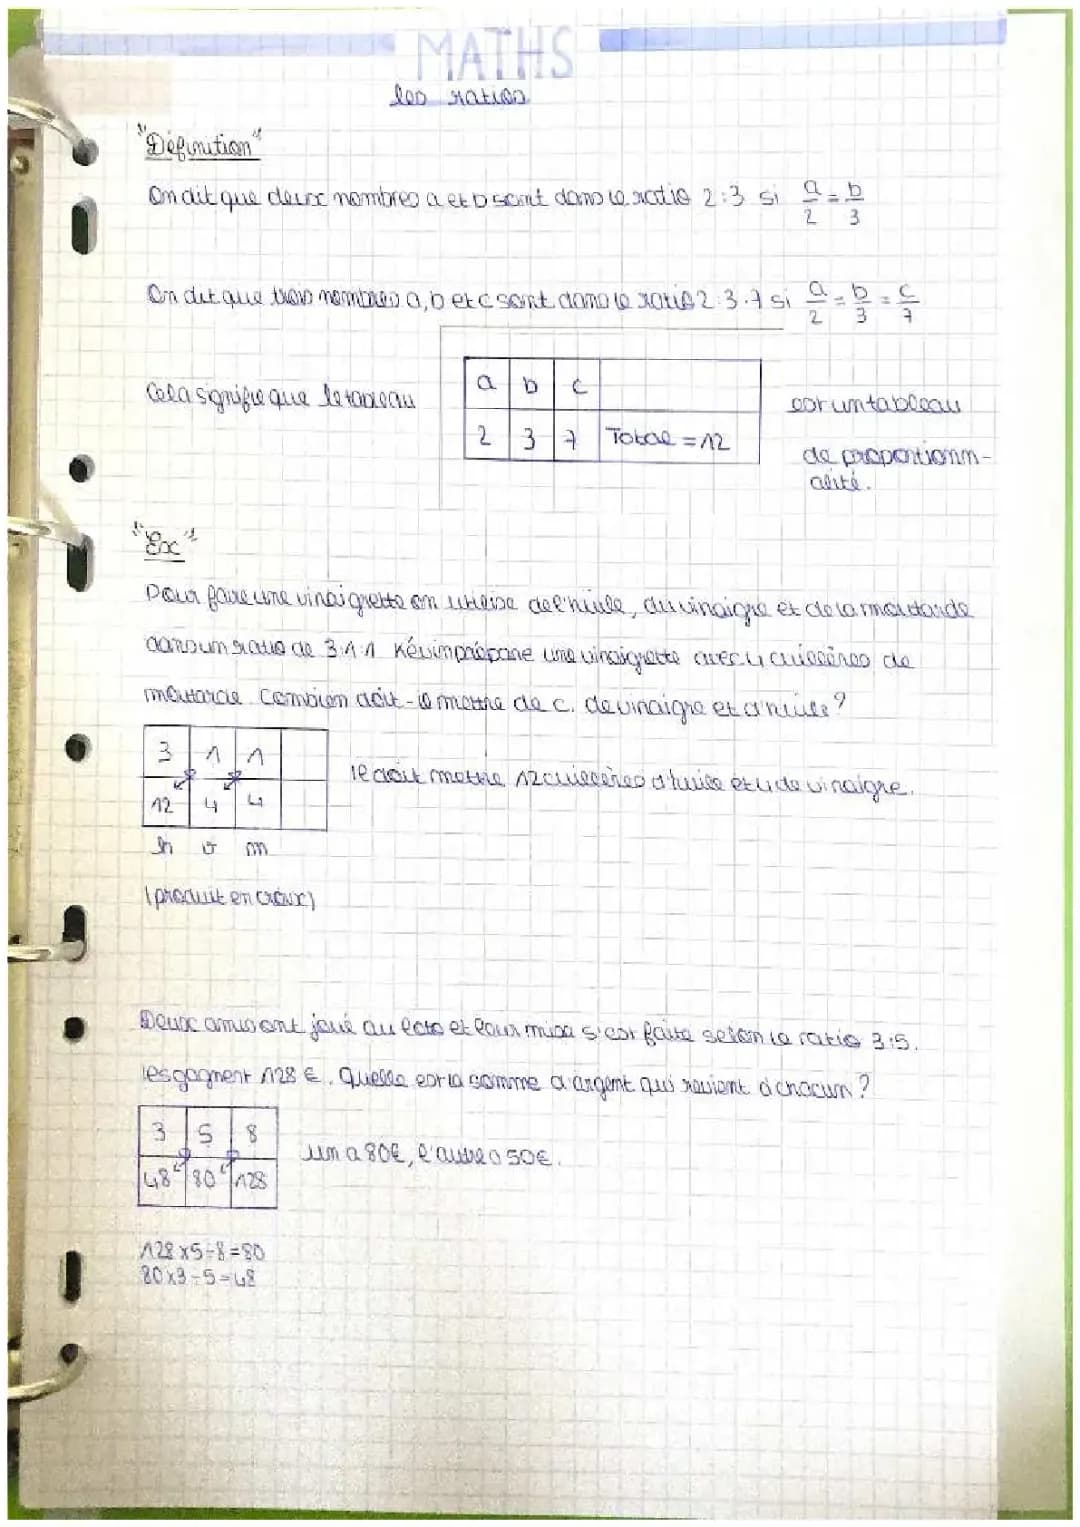 MATHS
les ratios
"Définition"
On dit que deux nombres a et b sont dans le ratio 2:3 si a/2 = b/3
On dit que trois nombres a, b et c sont dans le ratio 2:3:7 si a/2 = b/3 = c/7
Cela signifie que le tableau
a b c
2 3 7 Total = 12
est un tableau
de proportionn-
alité.
"Ex"
Pour faire une vinaigrette on utilise de l'huile, du vinaigre et de la moutarde
dans un ratio de 3:1:1 Kévin prépare une vinaigrette avec 4 cuillères de
moutarde. Combien doit-il mettre de c. de vinaigre et d'huile?
3 1 1
12 4 4
h v m
Il doit mettre 12 cuillères d'huile et 4 de vinaigre.
(produit en croix)
Deux amis ont joué au loto et leur mise s'est faite selon le ratio 3:5.
Ils gagnent 128 €. Quelle est la somme d'argent qui revient à chacun?
3 5 8
48 80 128
un a 80€, l'autre a 50€.
128 x 5 ÷ 8 = 80
80 x 3 ÷ 5 = 48